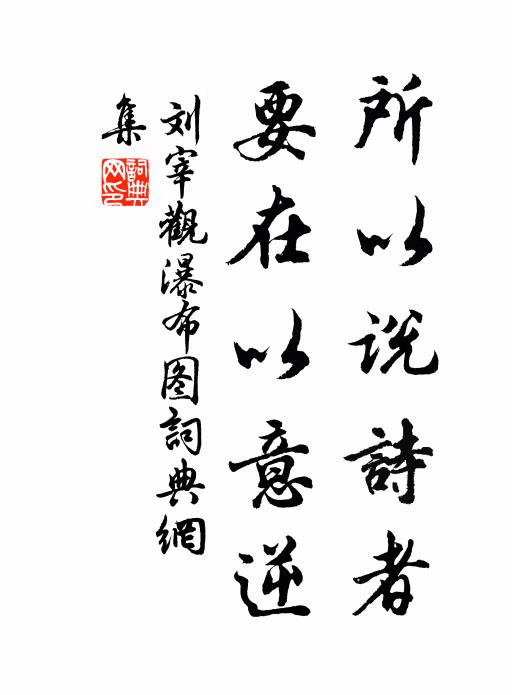 所以说詩者
要在以意逆
刘宰觀瀑布图詞典網
集
詞典網印